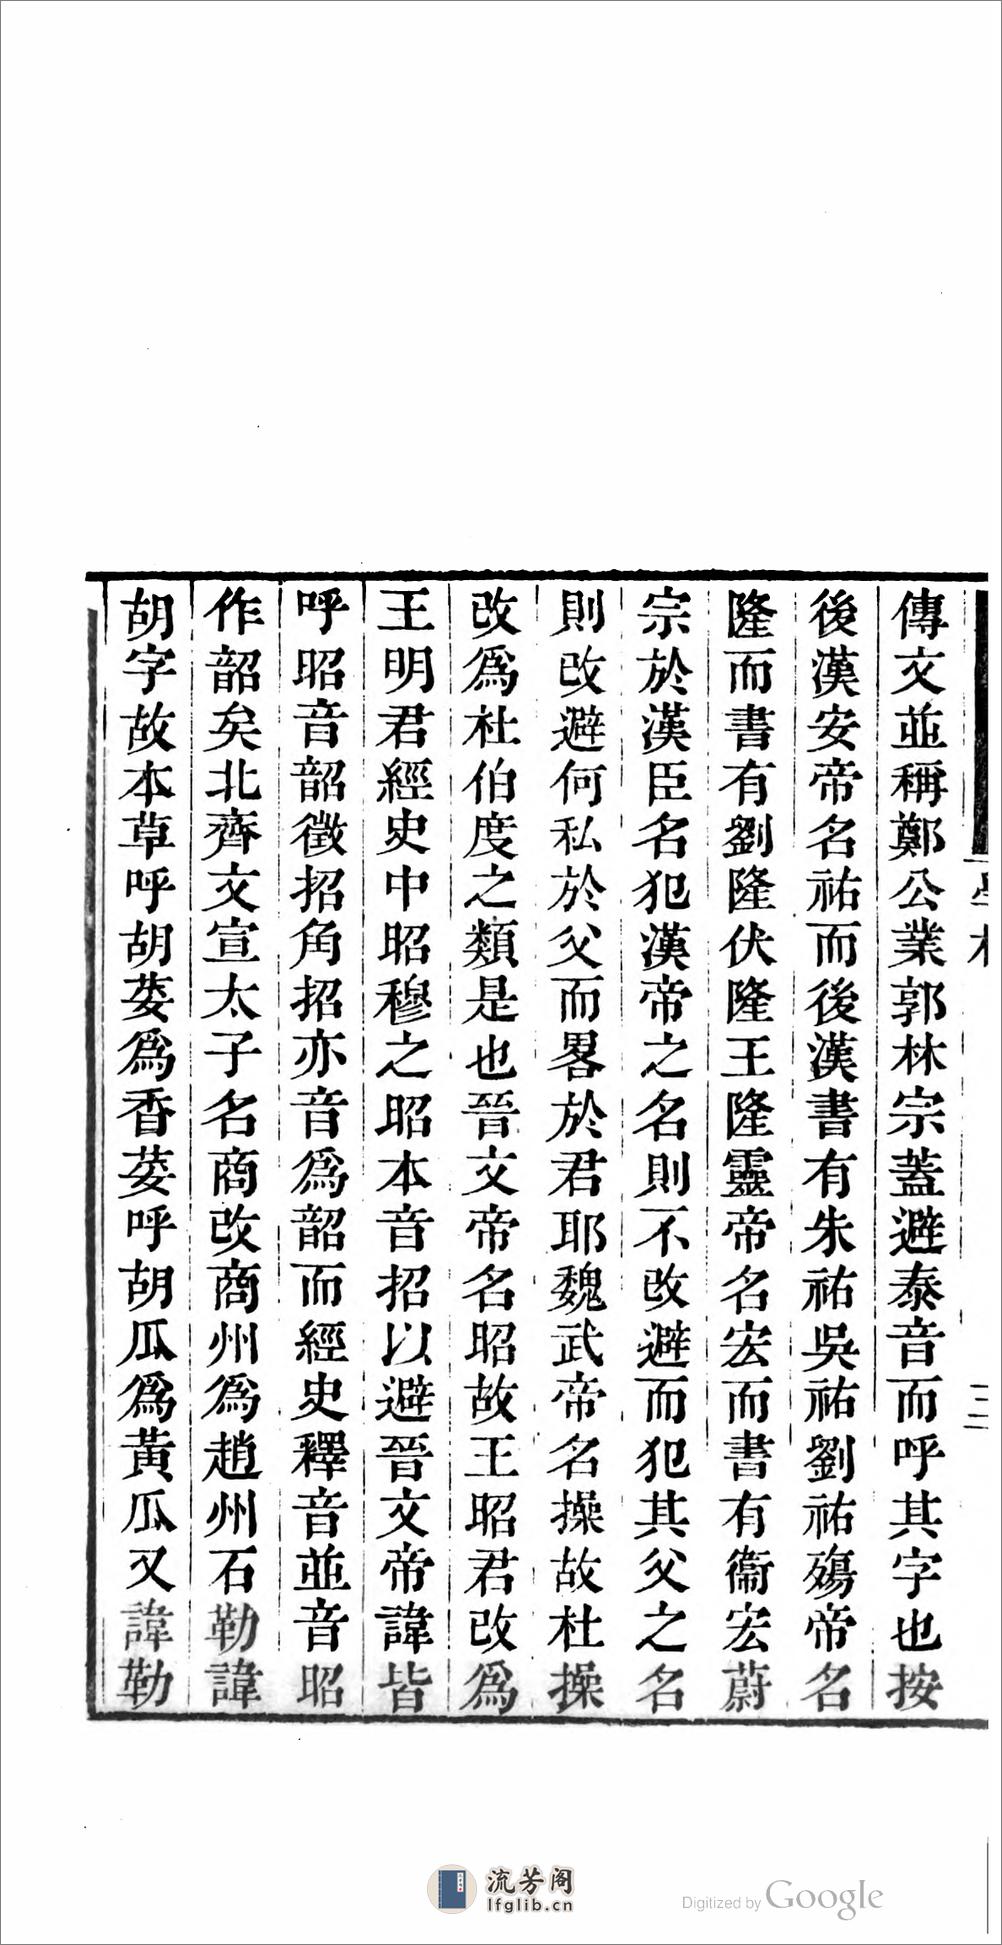 傳文並稱鄭公業郭林宗蓋避泰音而呼其字也按
後漢安帝名祐而後漢書有朱祐吳祐劉祐殤帝名
隆而書有劉隆伏隆王隆靈帝名宏而書有衞宏蔚
宗於漢臣名犯漢帝之名則不改避而犯其父之名
則改避何私於父而畧於君耶魏武帝名操故杜操
改爲杜伯度之類是也晉文帝名昭故王昭君改爲
王明君經史中昭穆之昭本音招以避晉文帝諱皆
呼昭音韶徵招角招亦音爲韶而經史釋音並音昭
作韶矣北齊文宣太子名商改商州爲趙州石勒諱
胡字故本草呼胡荽爲香荽呼胡瓜爲黃瓜又諱勒
流芳阁
lfglib.cn
Digitized by Google